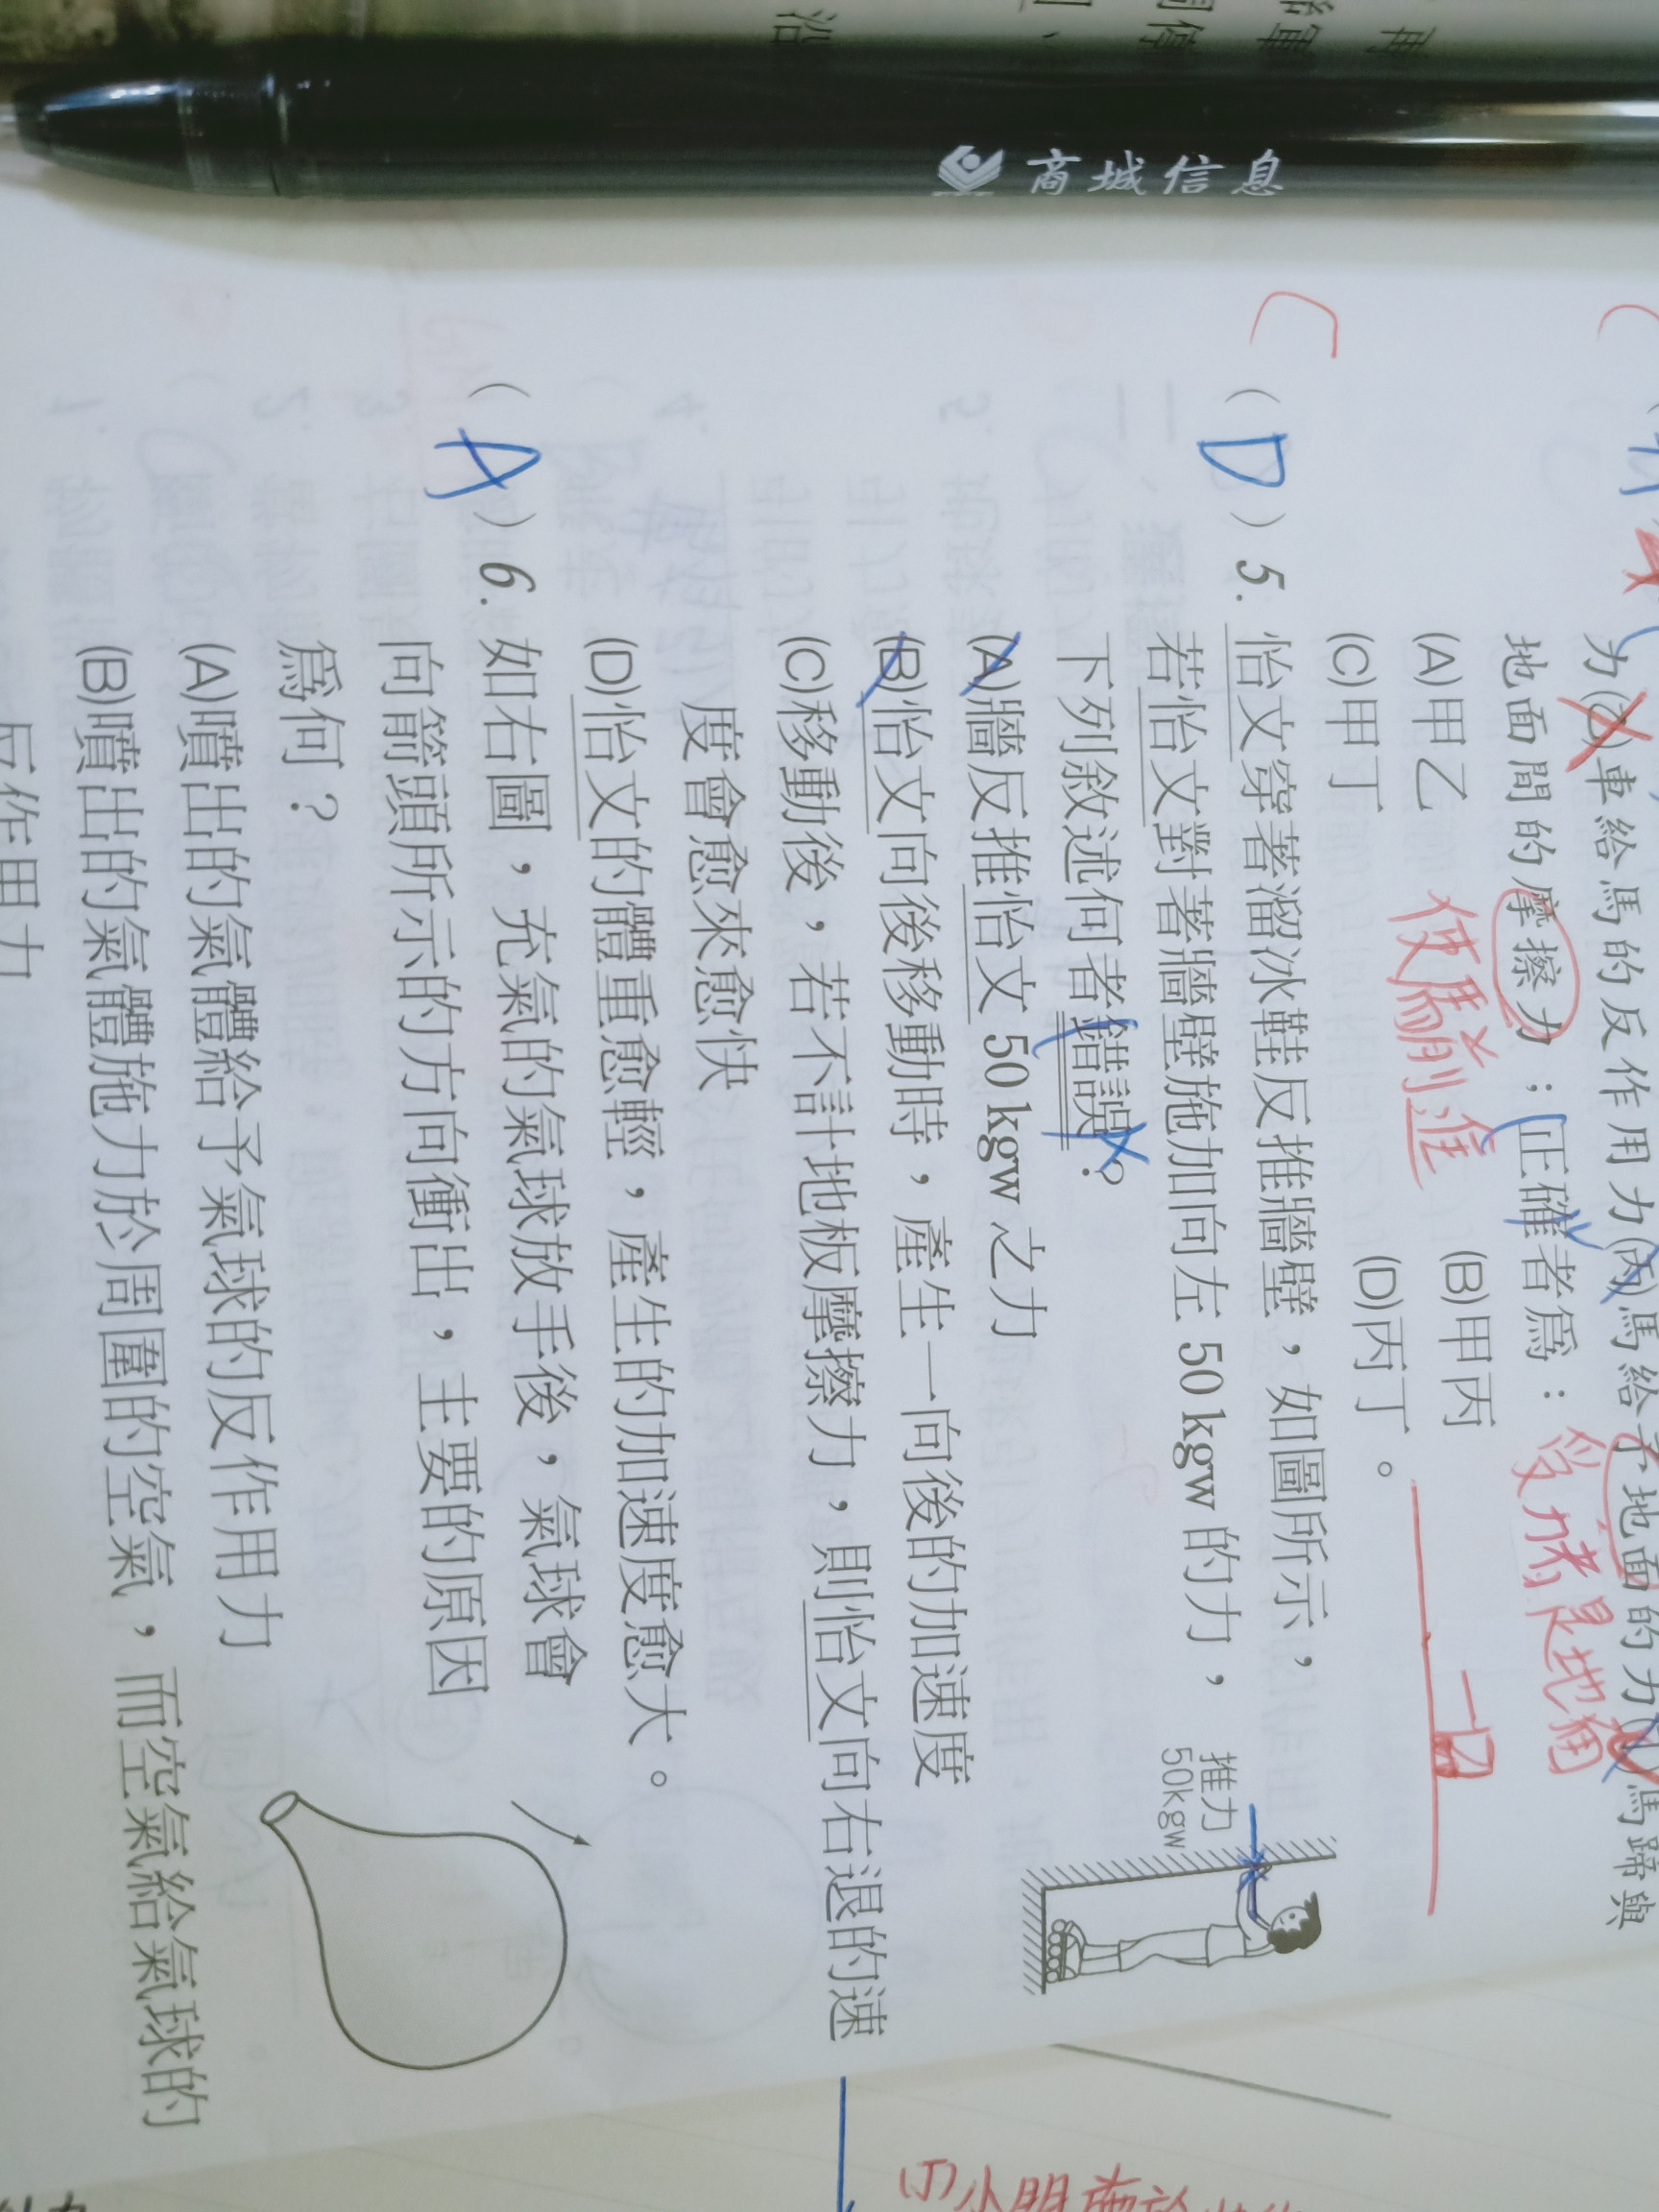 商城信息
力(乙)車給馬的反作用力(丙)馬給予地面的力(丁)馬蹄與
地面間的摩擦力；正確者為：
受力者是地面
(A)甲乙 (B)甲丙
使馬前進
(C)甲丁 (D)丙丁。
C
( D ) 5. 怡文穿著溜冰鞋反推牆壁，如圖所示，
若怡文對著牆壁施加向左 50 kgw 的力，
下列敘述何者錯誤？
(A)牆反推怡文 50 kgw 之力
(B)怡文向後移動時，產生一向後的加速度
(C)移動後，若不計地板摩擦力，則怡文向右退的速
度會愈來愈快
(D)怡文的體重愈輕，產生的加速度愈大。
推力
50kgw
( A ) 6. 如右圖，充氣的氣球放手後，氣球會
向箭頭所示的方向衝出，主要的原因
為何？
(A)噴出的氣體給予氣球的反作用力
(B)噴出的氣體施力於周圍的空氣，而空氣給氣球的
反作用力
(丁)小明施於